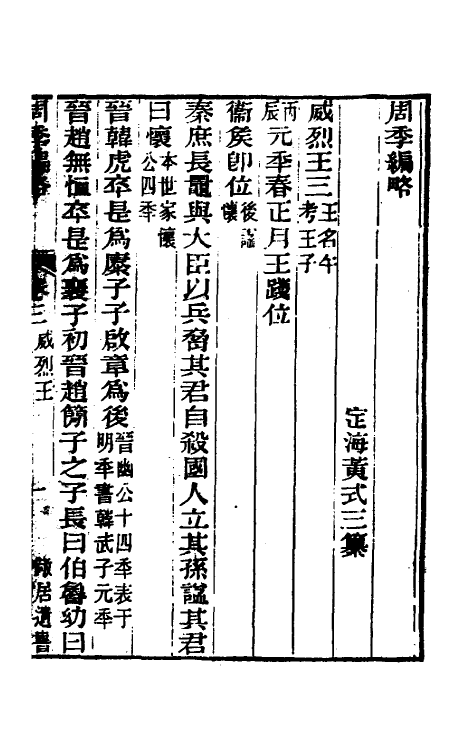 周季編略
定海黃式三纂
威烈王三王名午考王子
丙辰元秊春正月王踐位
衞矦卽位後諡懷
秦庶長鼂與大臣以兵脅其君自殺國人立其孫諡其君
曰懷本世家懷公四秊
晉韓虎卒是爲康子子啟章爲後晉幽公十四秊表于明秊書韓武子元秊
晉趙無恤卒是爲襄子初晉趙簡子之子長曰伯魯幼曰
周季編略 卷三 威烈王 一 儆居遺書